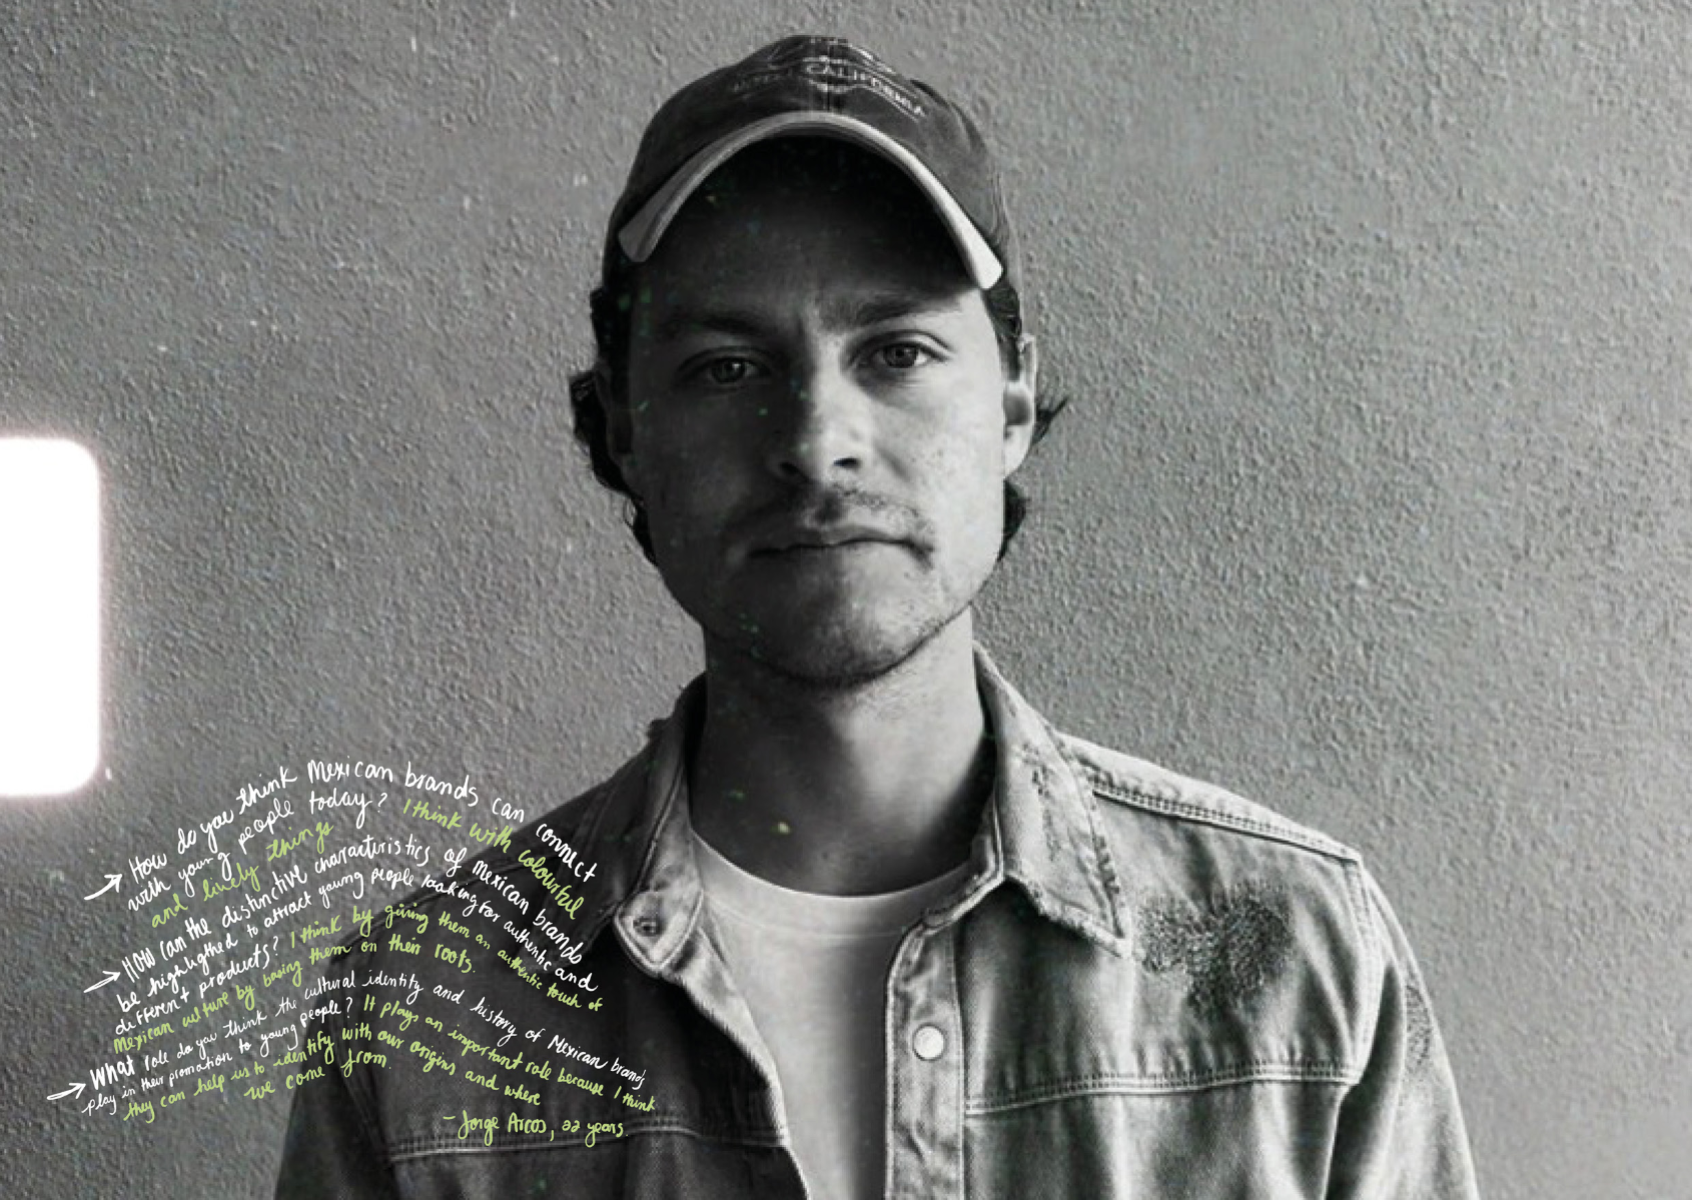 CALIFORNIA
→ How do you think Mexican brands can connect
with young people today? I think with colourful
and lively things
→ How can the distinctive characteristics of mexican brands
be highligthed to attract young people looking for authentic and
different products? I think by giving them an authentic touch of
Mexican culture by basing them on their roots.
→ What role do you think the cultural identity and history of Mexican brands
play in their promotion to young people? It plays an important role because I think
they can help us to identify with our origins and where
we come from.
- Jorge Arcos, 22 years.